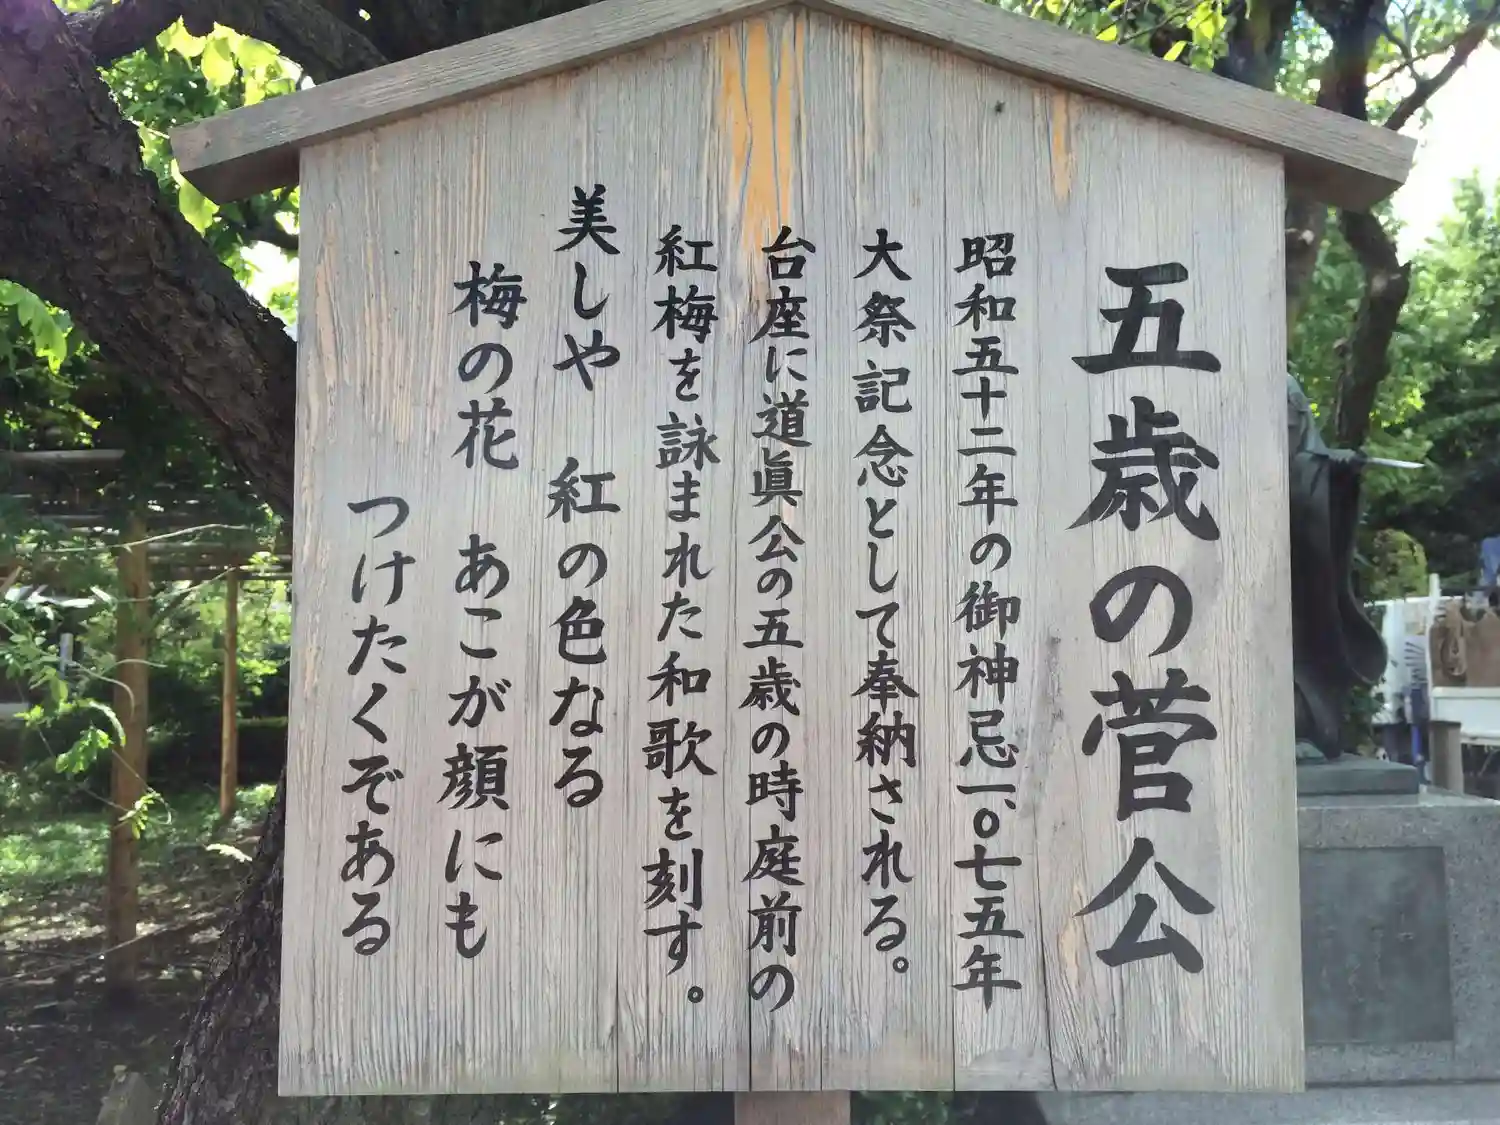 五歳の菅公
昭和五十二年の御神忌一、〇七五年
大祭記念として奉納される。
台座に道眞公の五歳の時庭前の
紅梅を詠まれた和歌を刻す。
美しや 紅の色なる
梅の花 あこが顔にも
つけたくぞある